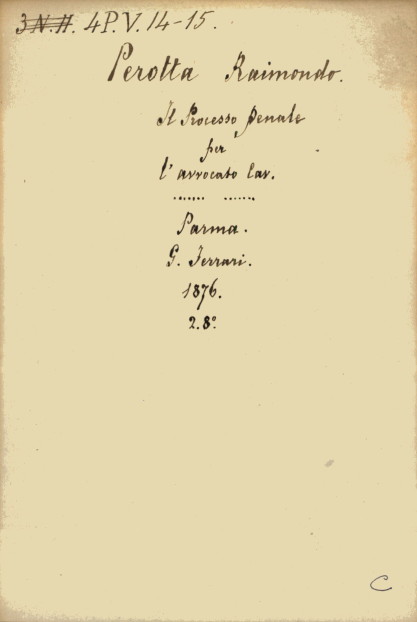 3 N.H. 4P.V. 14-15.
Perotta Raimondo.
Il Processo penale
per
l'avvocato Cav.
Parma.
G. Ferrari.
1876.
2. 8º
C